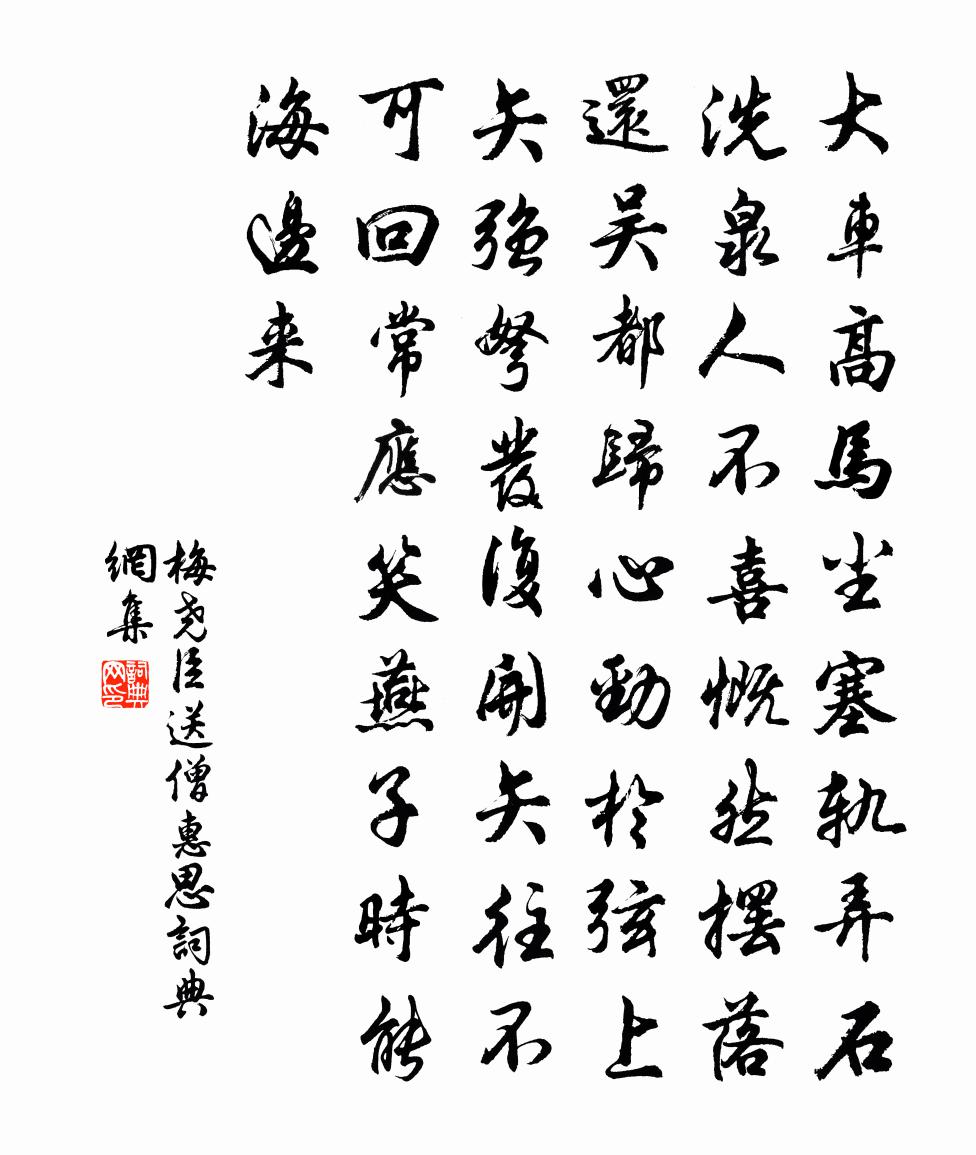 大車高馬尘塞軌弄石
洗泉人不喜慨然擺落
還吴都歸心勁於弦上
矢強弩發復開矢往不
可回常應笑燕子時能
海邊来
梅尧臣送僧惠思詞典
網集
詞典
网印